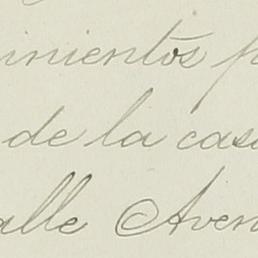 inientos p
de la casa
alle Aven